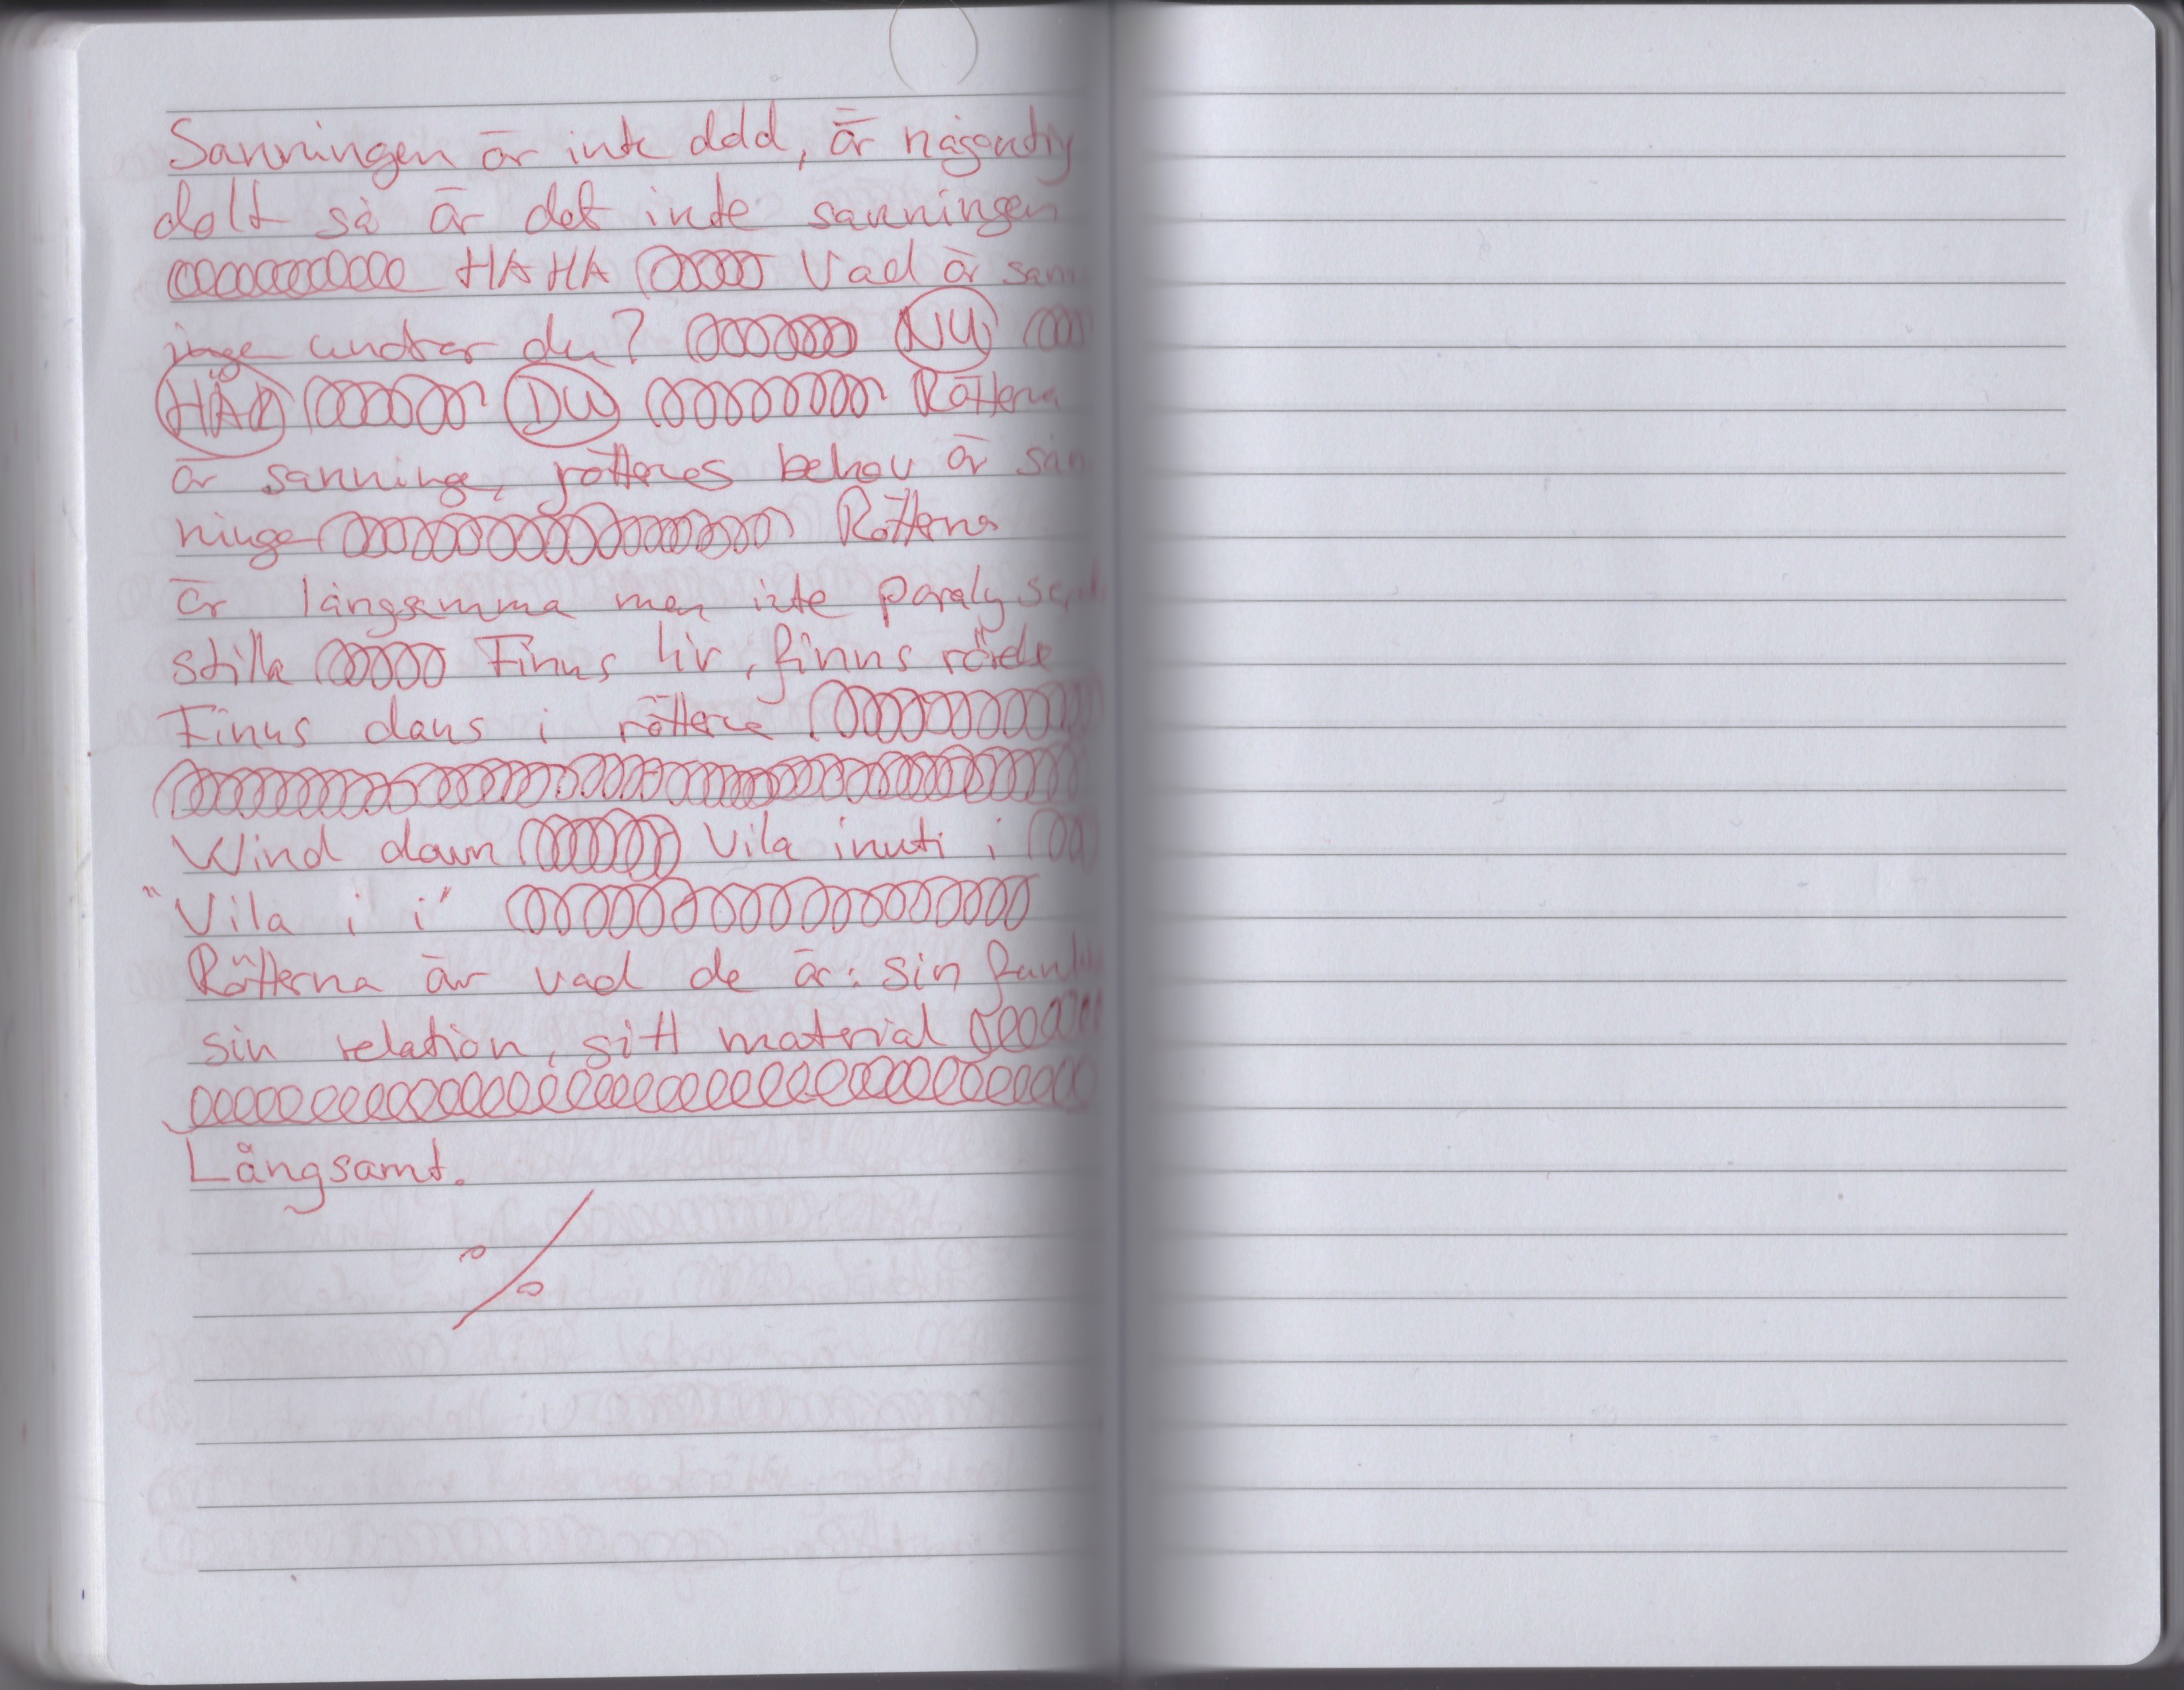 Sanningen är inte dold, är någonting
dolt så är det inte sanningen
HAHA Vad är sann
inge undrar du? NU
HÄR DU Rötterna
är sanninge, rötternes behov är san
ninge Rötterna
är långsamma men inte
stilla Finns liv, finns rörele
Finns dans i rötterna
Wind down Vila inuti i
"Vila i i"
Rötterna är vad de är: sin
sin relation, sitt material
Långsamt.